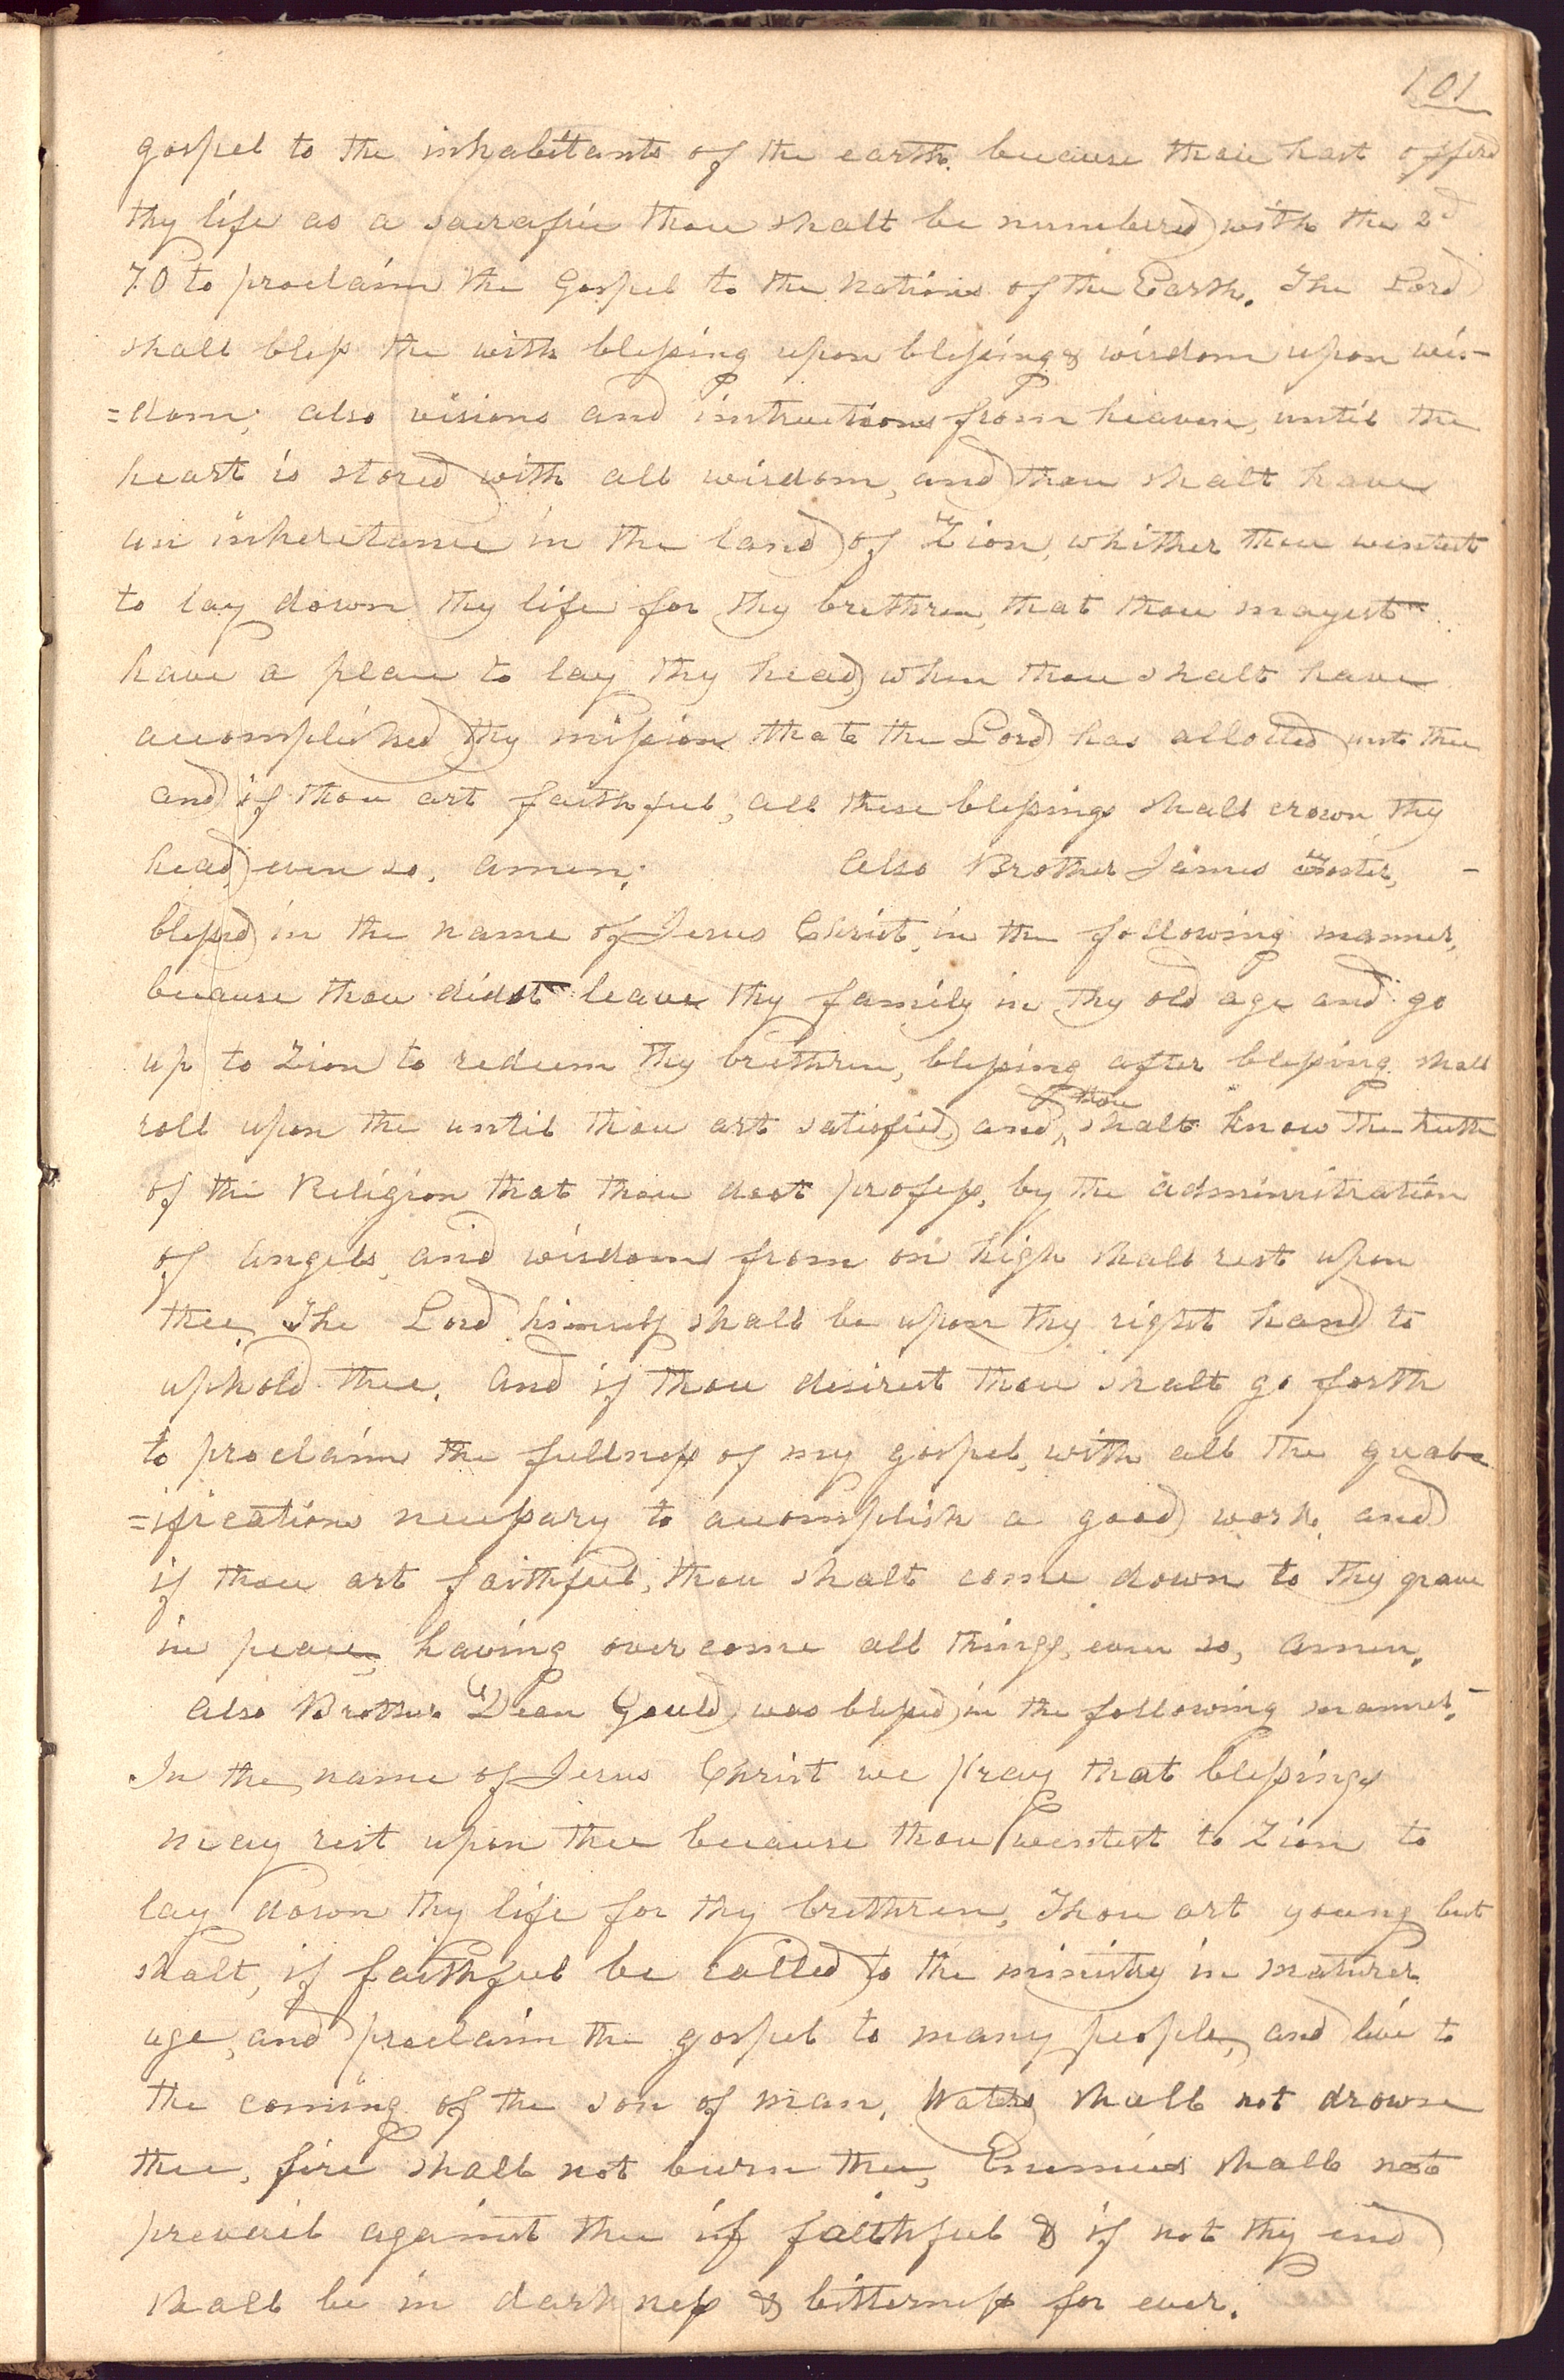 101
gospel to the inhabitants of the earth. because thou hast offerd
thy life as a sacrafice thou shalt be numbered with the 2d
70 to proclaim the Gospel to the Nations of the Earth. The Lord
shall bless the with blessing upon blessing & wisdom upon wis-
=dom; also visions and instructions from heaven, until the
heart is stored with all wisdom, and thou shalt have
an inheretance in the land of Zion, whither thou wentest
to lay down thy life for thy brethren, that thou mayest
have a place to lay thy head, when thou shalt have
accomplished thy mission that the Lord has allotted unto thee
and if thou art faithful, all these blessings shall crown thy
head, even so, amen;      Also Brother James Foster, -
blessed in the name of Jesus Christ, in the following manner,
because thou didst leave thy family in thy old age and go
up to Zion to redeem thy brethren, blessing after blessing shall
roll upon the until thou art satisfied, and thou shalt know the truth
of the Religion that thou dost profess, by the administration
of Angels, and wisdom from on high shall rest upon
thee, The Lord himself shall be upon thy right hand to
uphold thee. And if thou desirest thou shalt go forth
to proclaim the fullness of my gospel, with all the qual-
=ifications necessary to accomplish a good work, and
if thou art faithful, thou shalt come down to thy grave
in peace, having over come all things, even so, Amen.
Also Brother Dean Gould was blessed in the following manner,-
In the name of Jesus Christ we pray that blessings
may rest upon thee because thou wentest to Zion to
lay down thy life for thy brethren, Thou art young but
shalt, if faithful be called to the ministry in maturer
age, and proclaim the gospel to many people, and live to
the coming of the son of man. Waters shall not drown
thee, fire shall not burn thee, Enemies shall not
prevail against thee if faithful & if not thy end
shall be in darkness & bitterness for ever.